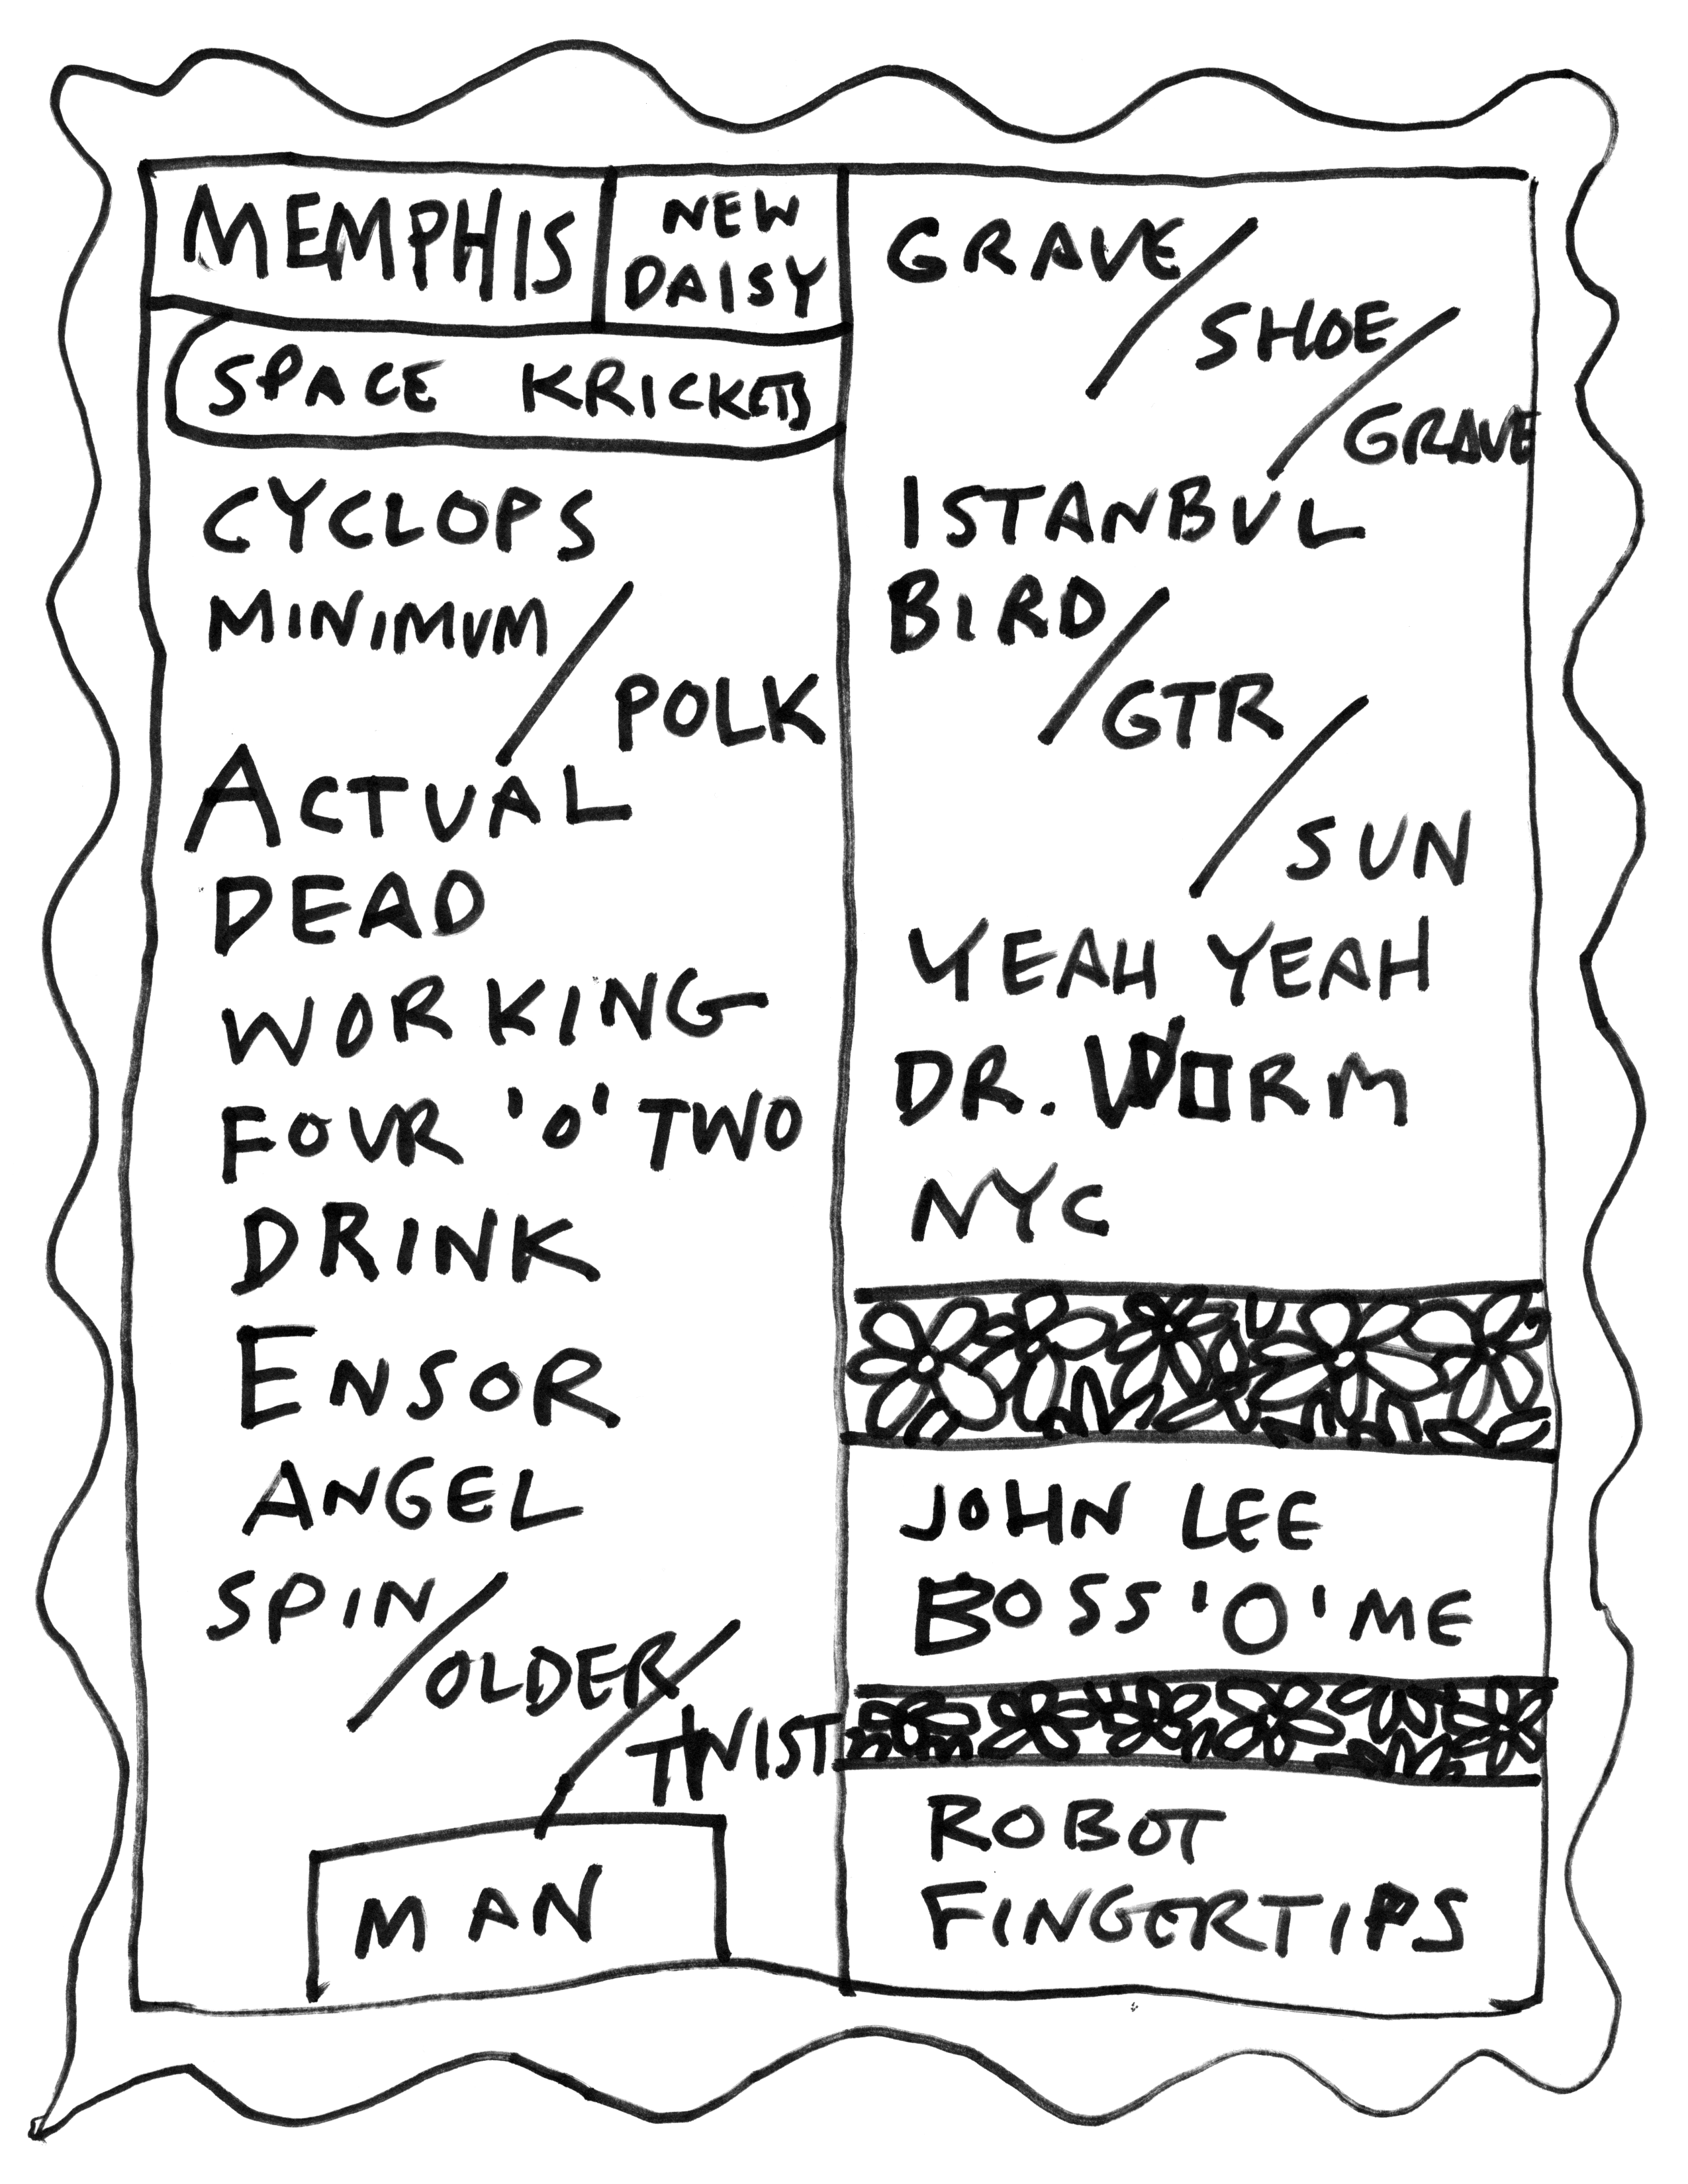 MEMPHIS
NEW
DAISY
SPACE KRICKETS
CYCLOPS
MINIMUM/
POLK
ACTUAL
DEAD
WORKING
FOUR 'O' TWO
DRINK
ENSOR
ANGEL
SPIN/
OLDER/
TWIST
MAN
GRAVE/
SHOE/
GRAVE
ISTANBUL
BIRD/
GTR/
SUN
YEAH YEAH
DR. WORM
NYC
JOHN LEE
BOSS 'O' ME
ROBOT
FINGERTIPS